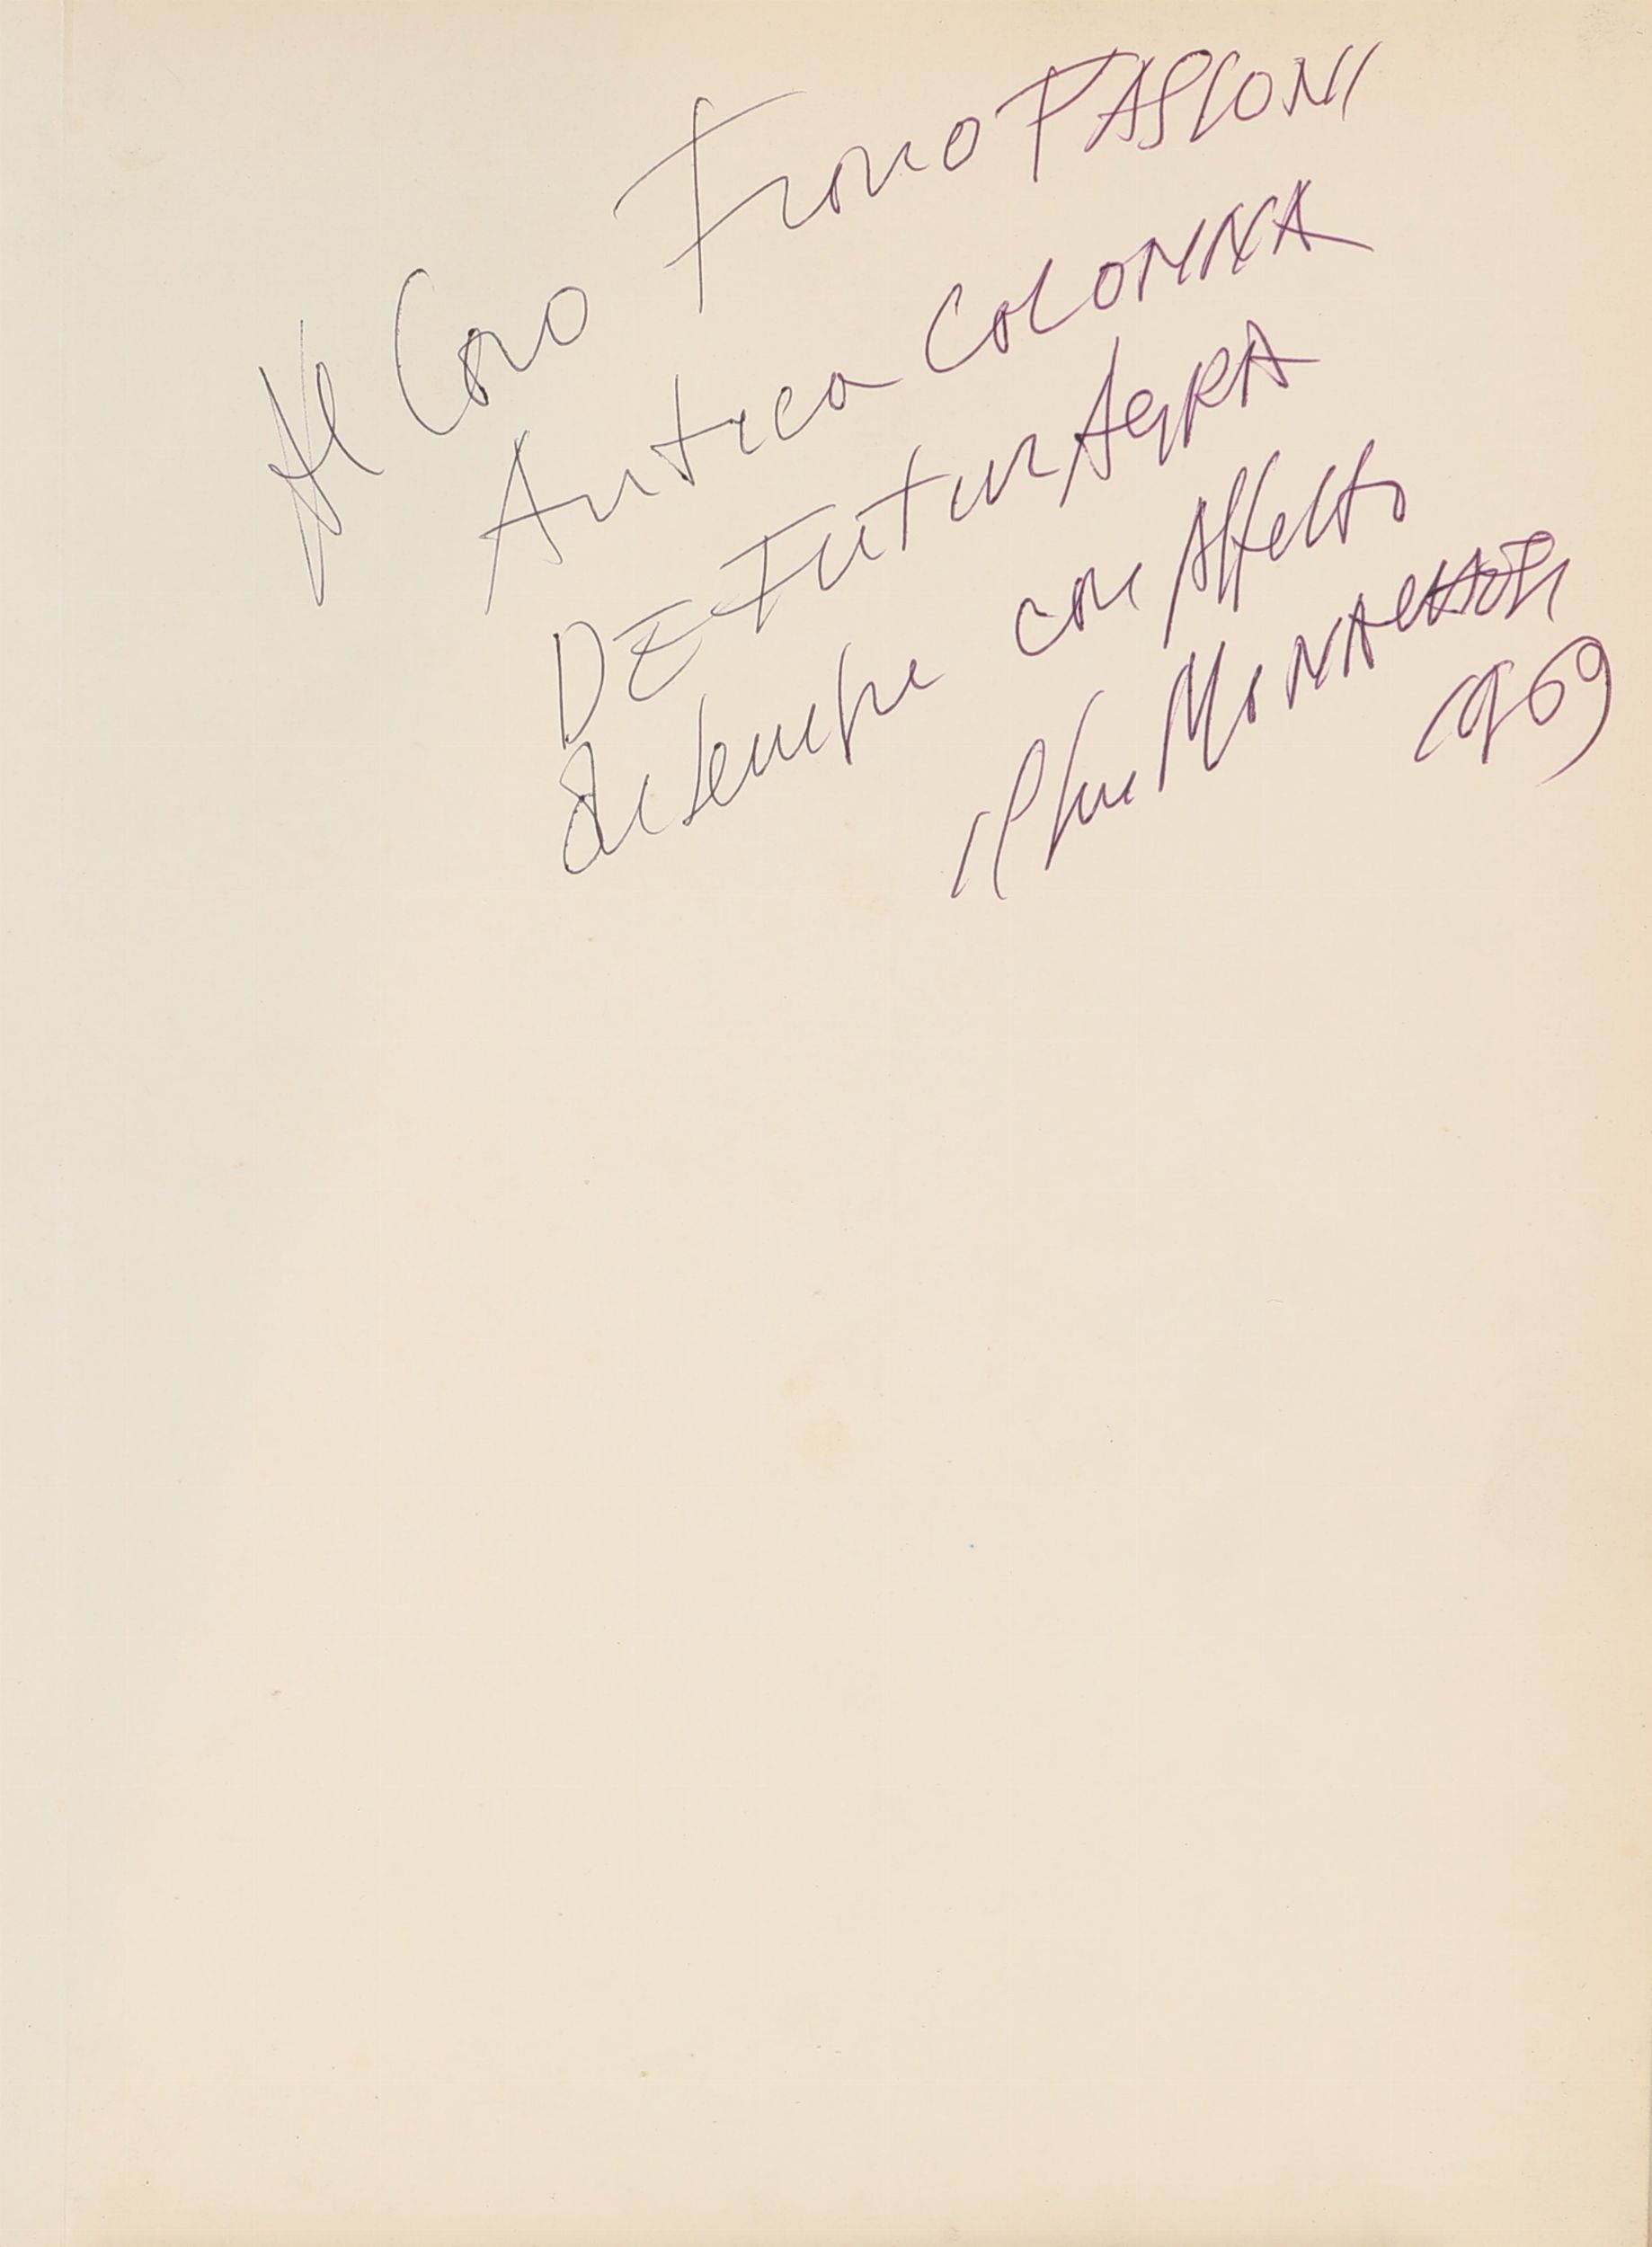 Al Caro Franco PASSONI
Antica COLONNA
DE Futur AGRA
di sempre con Affetto
il suo MONACHESI
1969